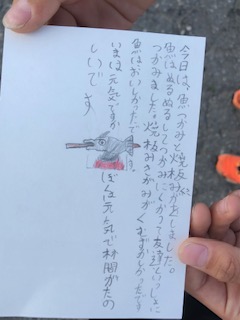 今日は、魚つかみと焼板をしました。
魚はぬるぬるしてつかみにくかって友達といっしょに
つかみました。焼板みがきがむずかしかったです
魚はおいしかったです。
いまは元気ですか ぼくは元気で林間がたの
しいです